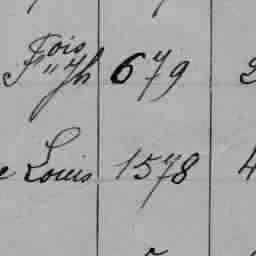 Fois
F " Jh 679 2
e Louis 1578 4